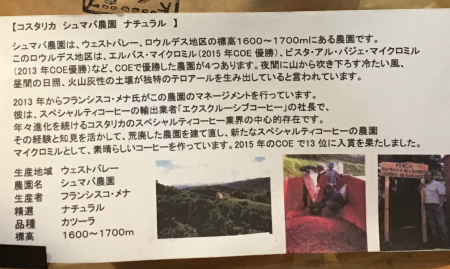 【コスタリカ シュマバ農園 ナチュラル 】
シュマバ農園は、ウェストバレー、ロウルデス地区の標高1600～1700mにある農園です。
このロウルデス地区は、エルバス・マイクロミル（2015年COE 優勝）、ビスタ・アル・バジェ・マイクロミル
（2013 年COE優勝）など、COEで優勝した農園が4つあります。夜間に山から吹き下ろす冷たい風、
昼間の日照、火山灰性の土壌が独特のテロアールを生み出していると言われています。
2013 年からフランシスコ・メナ氏がこの農園のマネージメントを行っています。
彼は、スペシャルティコーヒーの輸出業者「エクスクルーシブコーヒー」の社長で、
年々進化を続けるコスタリカのスペシャルティコーヒー業界の中心的存在です。
その経験と知見を活かして、荒廃した農園を建て直し、新たなスペシャルティコーヒーの農園
マイクロミルとして、素晴らしいコーヒーを作っています。2015 年のCOE で13 位に入賞を果たしました。
生産地域 ウェストバレー
農園名 シュマバ農園
生産者 フランシスコ・メナ
精選 ナチュラル
品種 カツーラ
標高 1600～1700m
FINCA